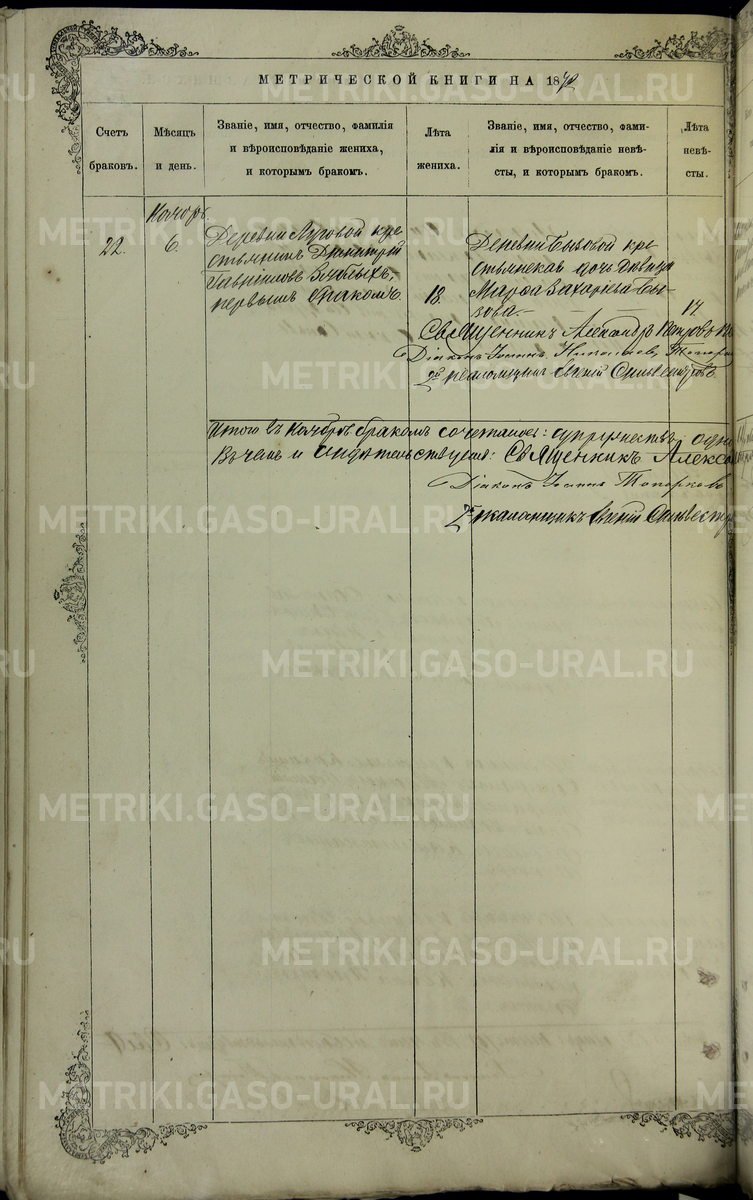 МЕТРИЧЕСКОЙ КНИГИ НА 1872
Счетъ браковъ.
Мѣсяцъ и день.
Званіе, имя, отчество, фамилія
и вѣроисповѣданіе жениха,
и которымъ бракомъ.
Лѣта жениха.
Званіе, имя, отчество, фами-
лія и вѣроисповѣданіе невѣ-
сты, и которымъ бракомъ.
Лѣта невѣ-
сты.
Ноябрь
22.
6.
Деревни Луговой кре-
стьянинъ Димитрій
Гавріиловъ
первымъ бракомъ.
18.
Деревни Бызовой кре-
стьянская дочь девица
Марѳа Захаріева Бы-
зова.
17
Священникъ Александръ
Діаконъ Іоаннъ
Итого въ Ноябрѣ бракомъ сочеталось: супружествъ одно
Въ чемъ и свидѣтельствуемъ: Священникъ Алекса
Діаконъ Іоаннъ Топорковъ
METRIKI.GASO-URAL.RU